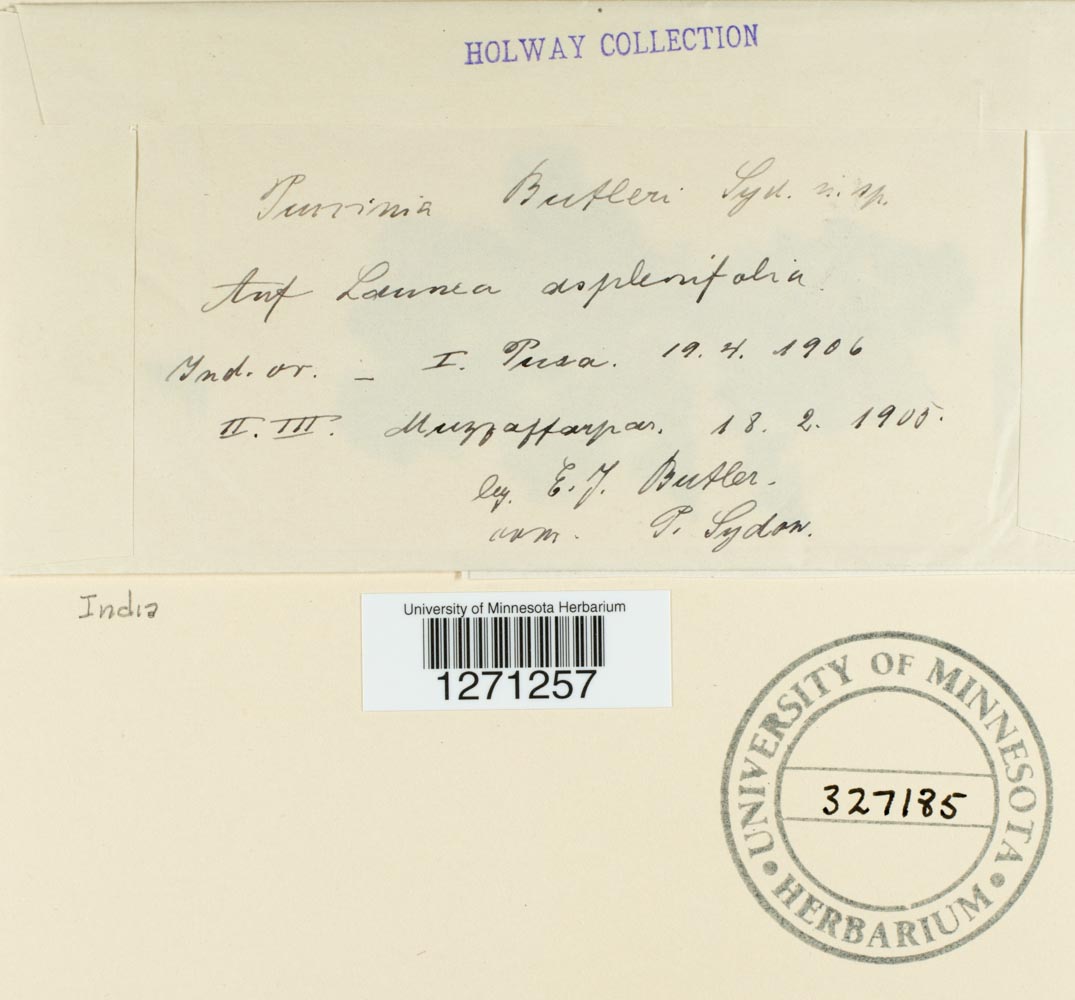 HOLWAY COLLECTION
Puccinia Butleri Syd. n. sp.
Auf Launea asplenifolia
Ind. or. – I. Pusa. 19. 4. 1906
II. III. Muzzaffarpar. 18. 2. 1905.
leg. E. J. Butler.
com. P. Sydow.
India
University of Minnesota Herbarium
1271257
UNIVERSITY OF MINNESOTA
327185
• HERBARIUM •